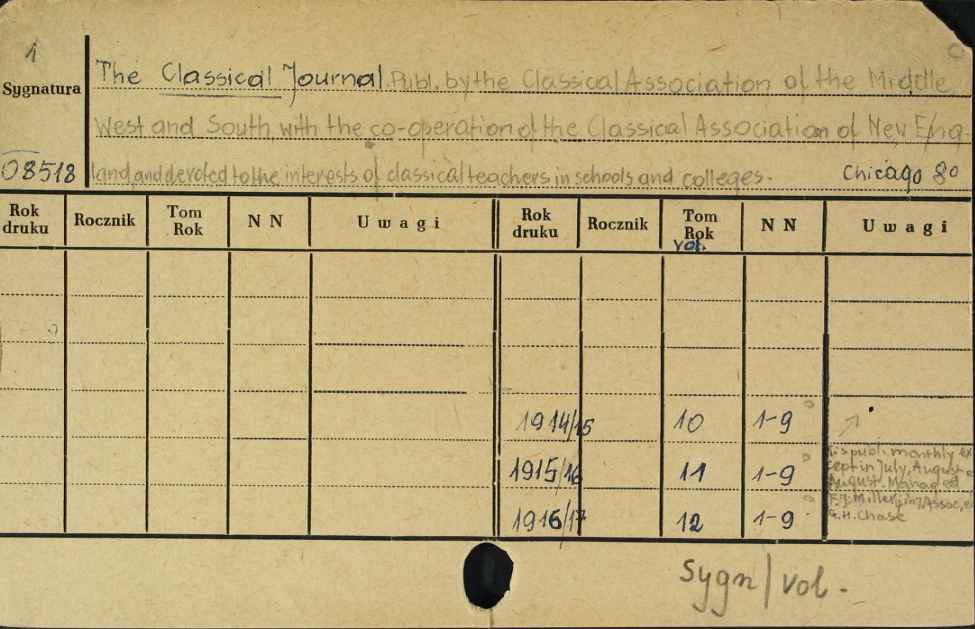 1
Sygnatura
The Classical Journal. Publ. by the Classical Association of the Middle
West and South with the co-operation of the Classical Association of New Eng-
08518 land and devoted to the interests of classical teachers in schools and colleges. Chicago 8°
Rok druku Rocznik Tom Rok NN Uwagi Rok druku Rocznik Tom Rok vol. NN Uwagi
1914/15 10 1-9
1915/16 11 1-9
1916/17 12 1-9
is publ. monthly ex
cept in July, August
August. Managed
F.J. Miller, Assoc.
G.H. Chase
Sygn/vol.